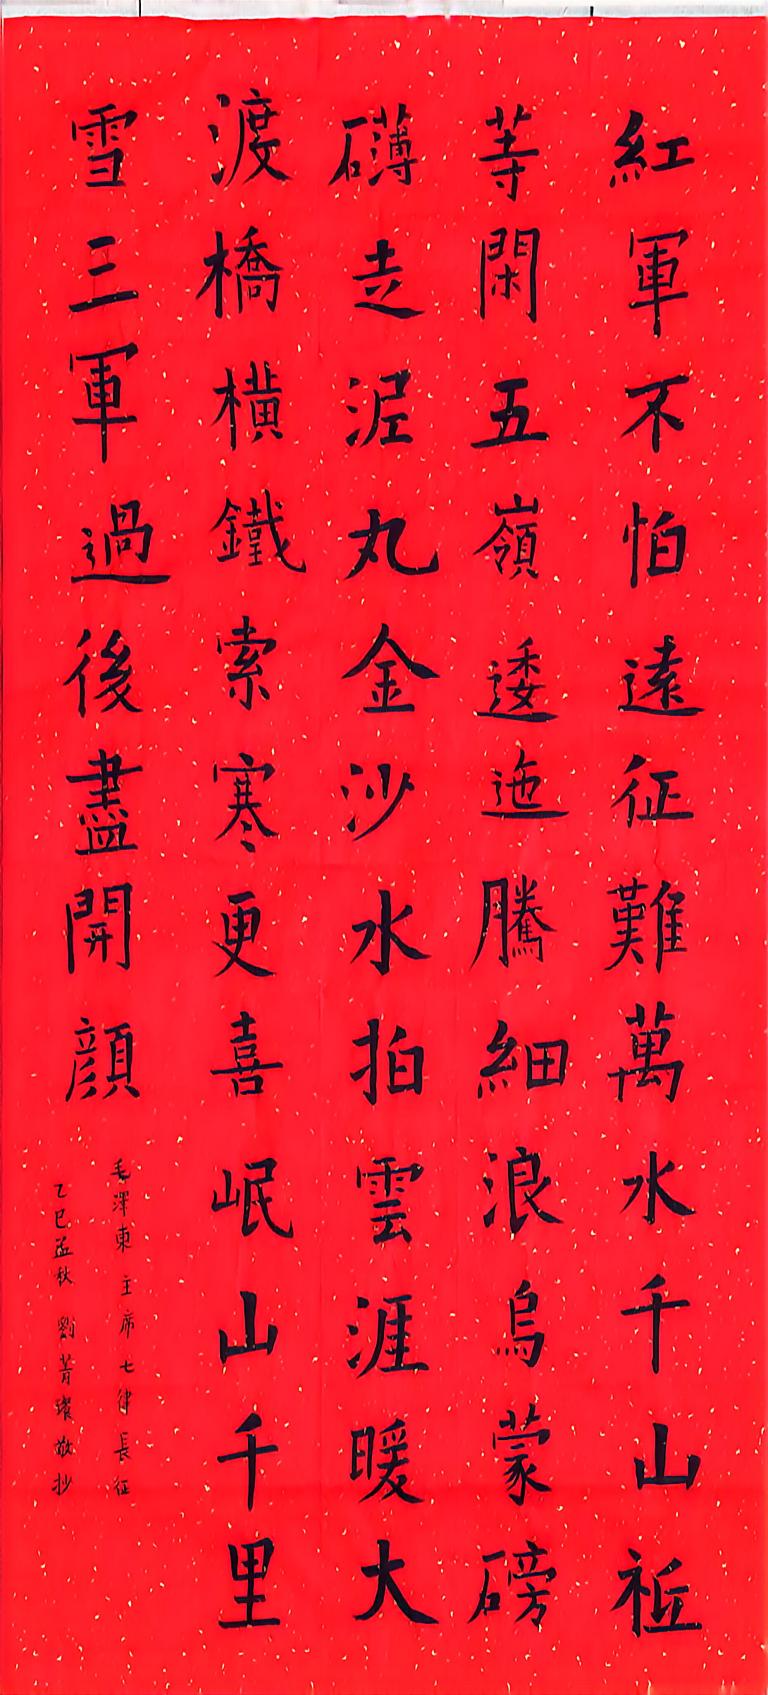 紅軍不怕遠征難萬水千山祗
等閑五嶺逶迤騰細浪烏蒙磅
礴走泥丸金沙水拍雲涯暖大
渡橋橫鐵索寒更喜岷山千里
雪三軍過後盡開顔
毛澤東主席七律長征
乙巳孟秋 劉菁璨敬抄